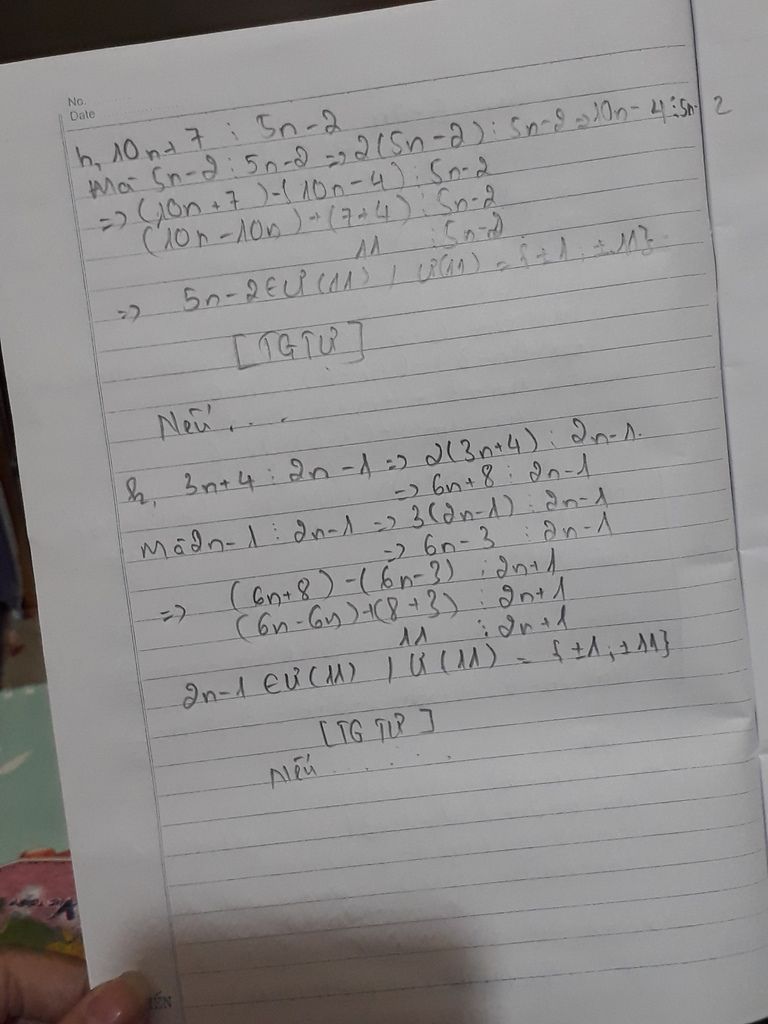 No.
Date
h, 10n+7 ⋮ 5n-2
Mà 5n-2 ⋮ 5n-2 => 2(5n-2) ⋮ 5n-2 => 10n-4 ⋮ 5n-2
=> (10n+7)-(10n-4) ⋮ 5n-2
(10n-10n)+(7+4) ⋮ 5n-2
11 ⋮ 5n-2
=> 5n-2 ∈ Ư(11) / Ư(11) = {±1; ±11}
[TG TỰ]
Nếu....
k, 3n+4 ⋮ 2n-1 => 2(3n+4) ⋮ 2n-1.
=> 6n+8 ⋮ 2n-1
Mà 2n-1 ⋮ 2n-1 => 3(2n-1) ⋮ 2n-1
=> 6n-3 ⋮ 2n-1
=> (6n+8)-(6n-3) ⋮ 2n+1
(6n-6n)+(8+3) ⋮ 2n+1
11 ⋮ 2n+1
2n-1 ∈ Ư(11) / Ư(11) = {±1; ±11}
[TG TỰ]
Nếu .....